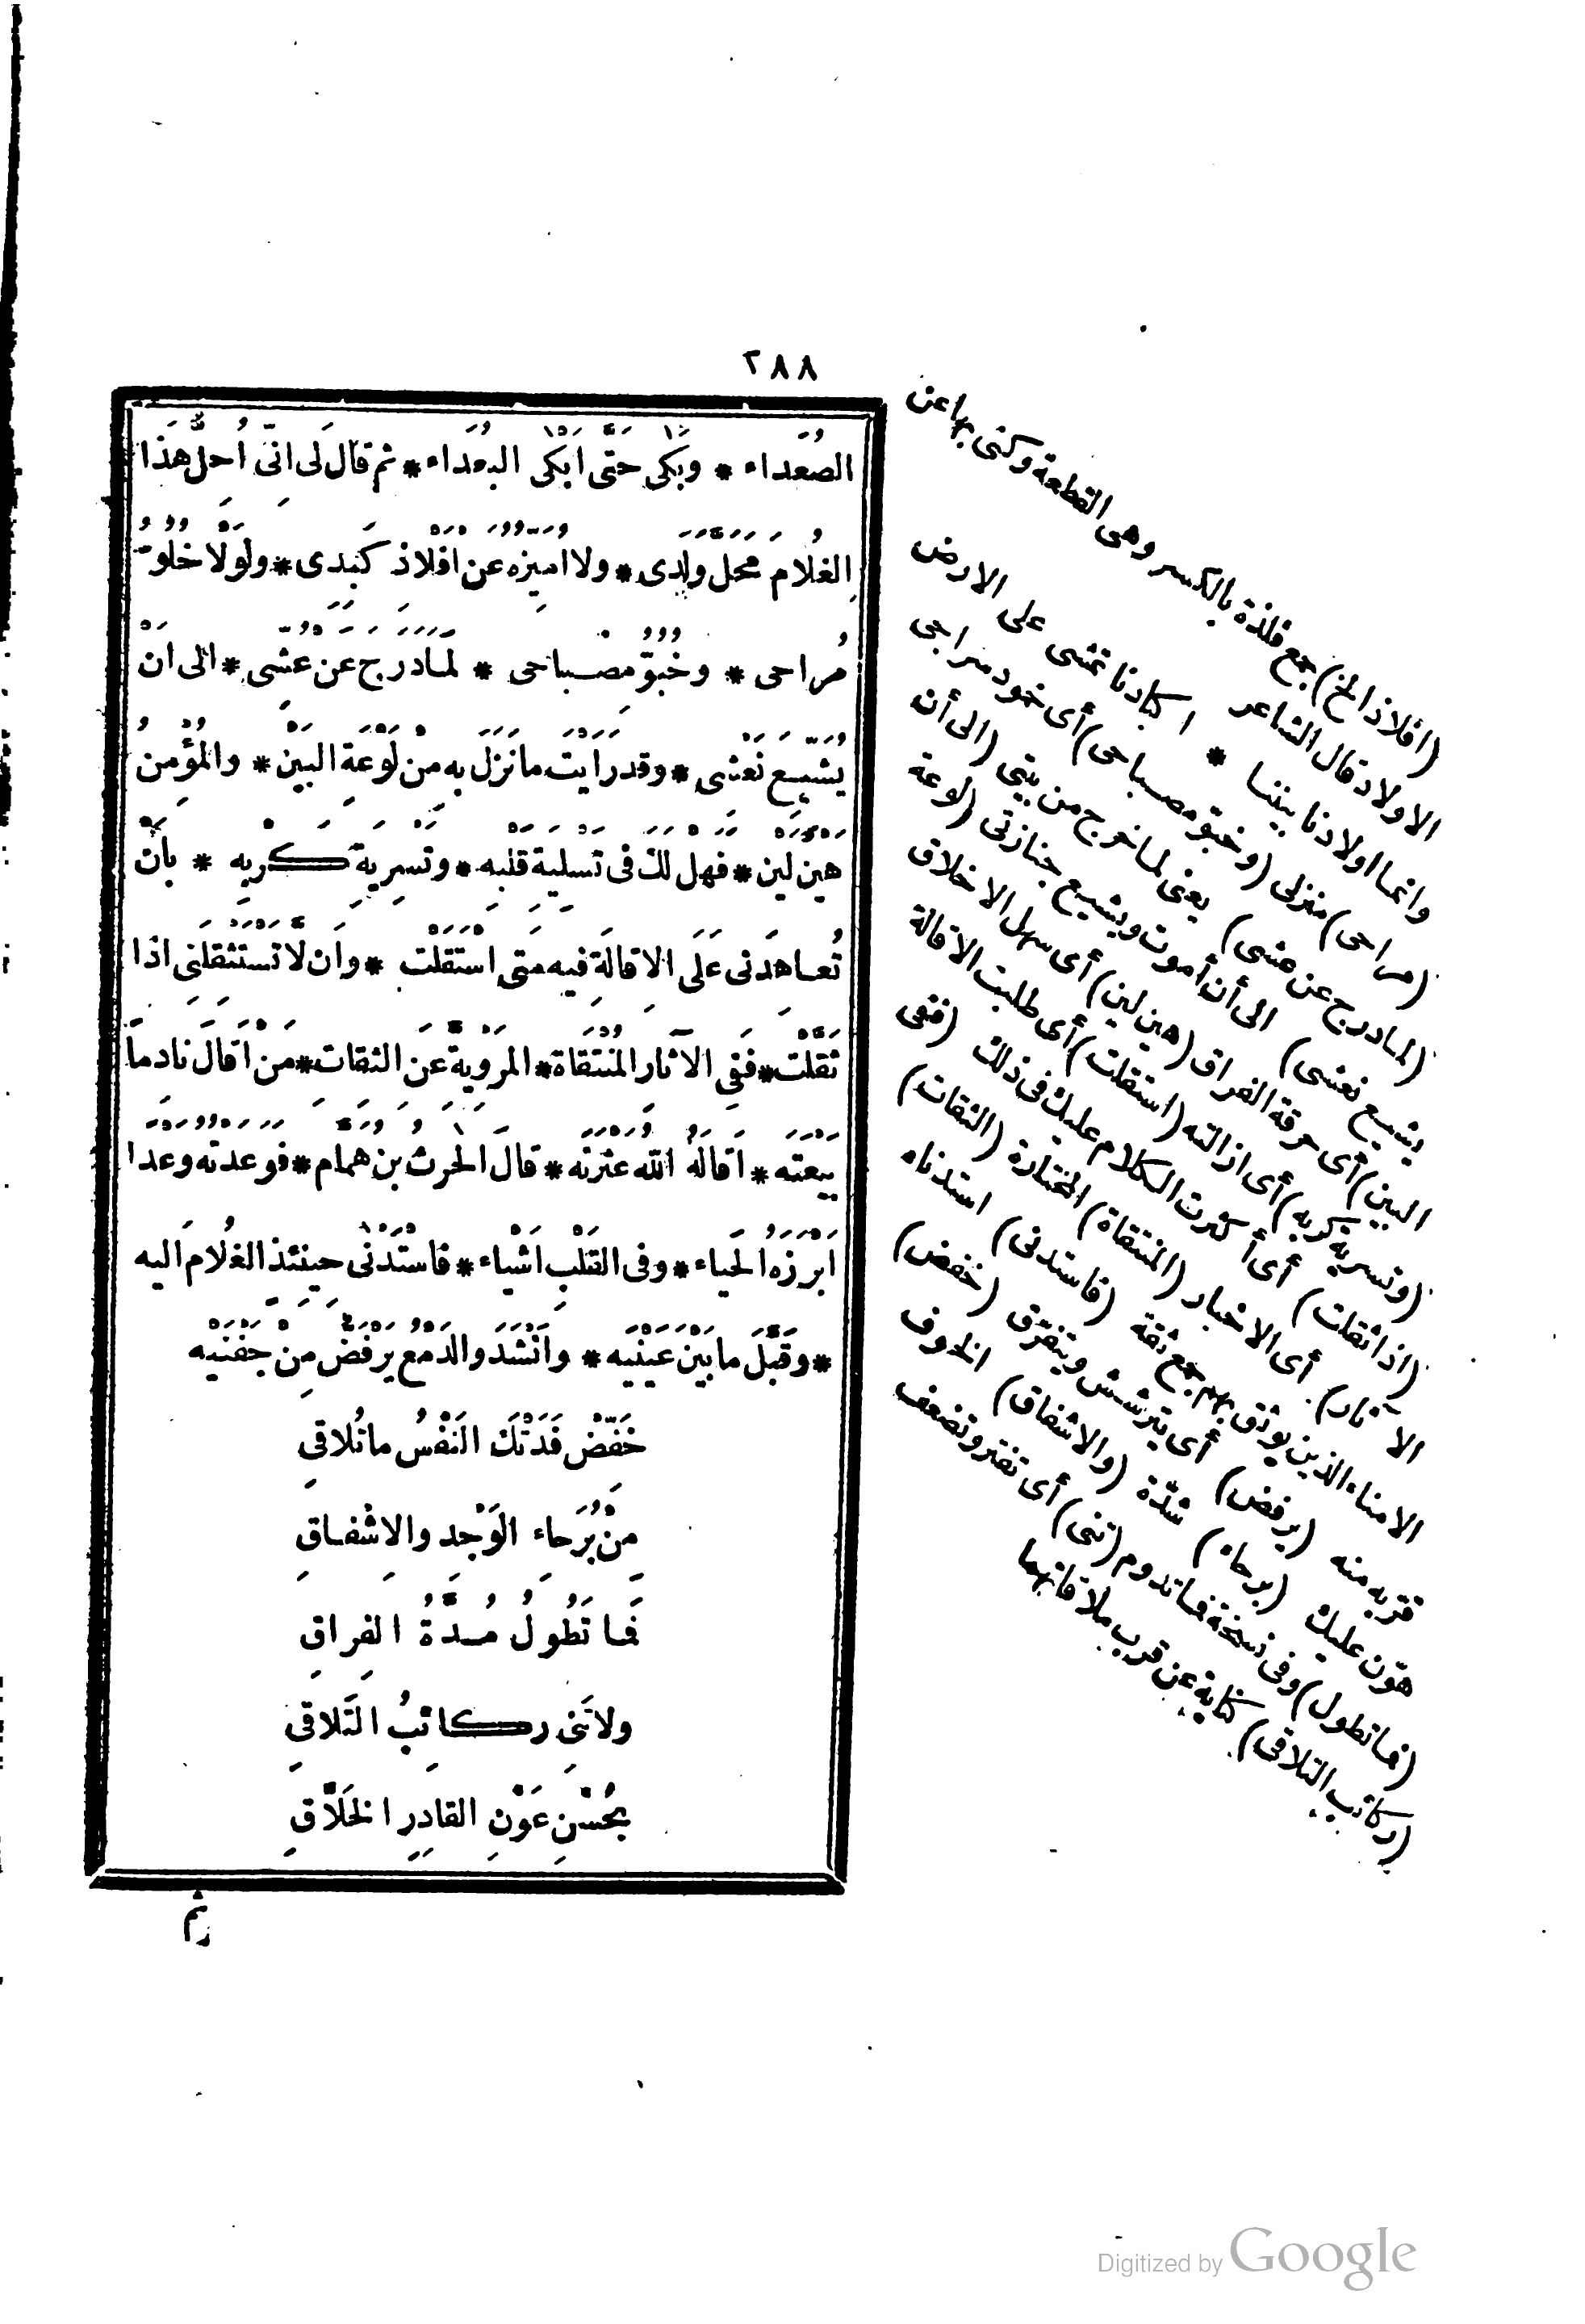 ٢٨٨
الصُّعَدَاء * وَبَكَى حَتَّى اَبْكَى البُعَدَاء * ثم قالَ لى اِنّى اُحِلُّ هَذَا
الغُلَامَ مَحَلَّ وَلَدِى * ولا اُمَيِّزُهُ عَنْ اَفْلَاذِ كَبِدِى * وَلَوْلَا خُلُوُّ
مُرَاحى * وخُبُوُّ مِصْباحى * لَمَا دَرَجَ عن عُشِّى * الى اَنْ
يُشَيَّعَ نَعْشِى * وقد رَاَيْتَ ما نَزَلَ بِهِ مِنْ لَوْعَةِ البَيْن * والمُؤْمِنُ
هَيْنٌ لَيْن * فَهَلْ لَكَ فى تَسْلِيَةِ قَلْبِه * وتَسْرِيَةِ كَرْبِه * بِاَنْ
تُعَاهِدَنى عَلَى الاِقالَةِ فيه مَتَى اسْتَقَلْت * وَاَنْ لَا تَسْتَثْقِلَنِى اذا
ثَقَّلْت * فَفِى الآثارِ المُنْتَقاة * المَرْوِيَّةِ عَنِ الثِّقات * مَنْ اَقالَ نادِماً
بَيْعَتَه * اَقَالَهُ اللهُ عَثْرَتَه * قالَ الحَرِثُ بن هَمَّام * فَوَعَدْتُهُ وَعْدًا
اَبْرَزَهُ الحَياء * وفى القَلْبِ اَشْياء * فاسْتَدْنَى حِينَئِذٍ الغُلَامَ اليه
* وقَبَّلَ ما بَيْنَ عَيْنَيْه * واَنْشَدَ والدَمْعُ يَرْفَضُّ مِنْ جَفْنَيْه
خَفِّضْ فَدَتْكَ النَفْسُ ما تُلاقِى
مِنْ بُرَحاءِ الوَجْدِ والاِشْفاقِ
فَما تَطُولُ مُدَّةُ الفِراقِ
ولا تَنِى رَكائِبُ التَّلاقِى
بِحُسْنِ عَوْنِ القادِرِ الخَلَّاقِ
ثم
(افلاذ الخ) جمع فلذة بالكسر وهى القطعة وكنى بها عن
الاولاد قال الشاعر
وانما اولادنا بيننا * اكبادنا تمشى على الارض
(مراحى) منزلى (وخبوّ مصباحى) أى خمود سراجى
(لما درج عن عشى) يعنى لما خرج من بيتى (الى أن
يشيع نعشى) الى أن أموت ويشيع جنازتى (لوعة
البين) أى حرقة الفراق (هين لين) أى سهل الاخلاق
(وتسرية كربه) أى ازالته (استقلت) أى طلبت الاقالة
(اذا ثقلت) أى أكثرت الكلام عليك فى ذلك (ففى
الآثار) أى الاخبار (المنتقاة) المختارة (الثقات)
الامناء الذين يوثق بهم جمع ثقة (فاستدنى) استدناه
قرّبه منه (يرفض) أى يترشش ويتفرّق (خفض)
هوّن عليك (برحاء) شدّة (والاشفاق) الخوف
(فما تطول) وفى نسخة فما تدوم (تنى) أى تفتر وتضعف
(ركائب التلاقى) كناية عن قرب ملاقاتهما
Digitized by Google